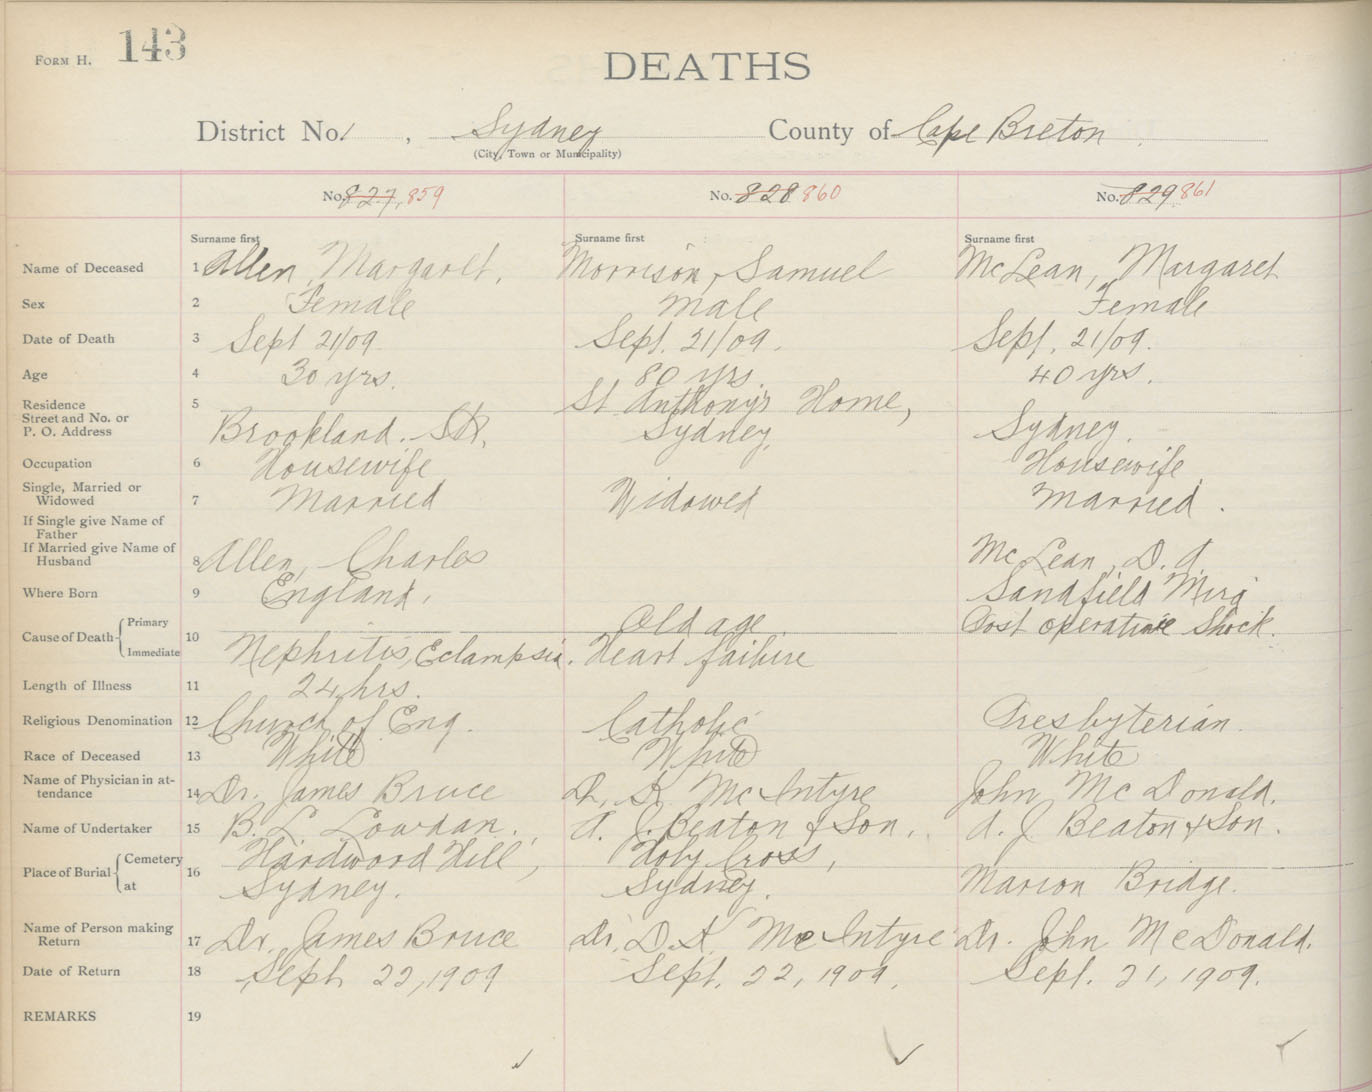 FORM H. 143
DEATHS
District No. 1, Sydney County of Cape Breton
(City, Town or Municipality)
No. 827, 859 No. 828 860 No. 829 861
Surname first Surname first Surname first
Name of Deceased 1 Allen, Margaret, Morrison, Samuel McLean, Margaret
Sex 2 Female Male Female
Date of Death 3 Sept 21/09. Sept. 21/09. Sept. 21/09.
Age 4 30 yrs. 80 yrs. 40 yrs.
Residence 5 St Anthony's Home,
Street and No. or
P. O. Address Brookland. St, Sydney, Sydney.
Occupation 6 Housewife Housewife
Single, Married or
Widowed 7 Married Widowed Married.
If Single give Name of
Father
If Married give Name of
Husband 8 Allen, Charles McLean, D. A.
Where Born 9 England, Sandfield Mira
Cause of Death Primary 10 Old age. Post operative Shock.
Immediate Nephritis, Eclampsia. Heart failure
Length of Illness 11 24 hrs.
Religious Denomination 12 Church of Eng. Catholic Presbyterian.
Race of Deceased 13 White White White
Name of Physician in at-
tendance 14 Dr. James Bruce D. A. McIntyre John McDonald.
Name of Undertaker 15 B. L. Lowdan. A. J. Beaton & Son. A. J. Beaton & Son.
Place of Burial Cemetery 16 Hardwood Hill, Holy Cross,
at Sydney. Sydney. Marion Bridge.
Name of Person making
Return 17 Dr. James Bruce Dr. D. A. McIntyre Dr. John McDonald.
Date of Return 18 Sept. 22, 1909 Sept. 22, 1909. Sept. 21, 1909.
REMARKS 19